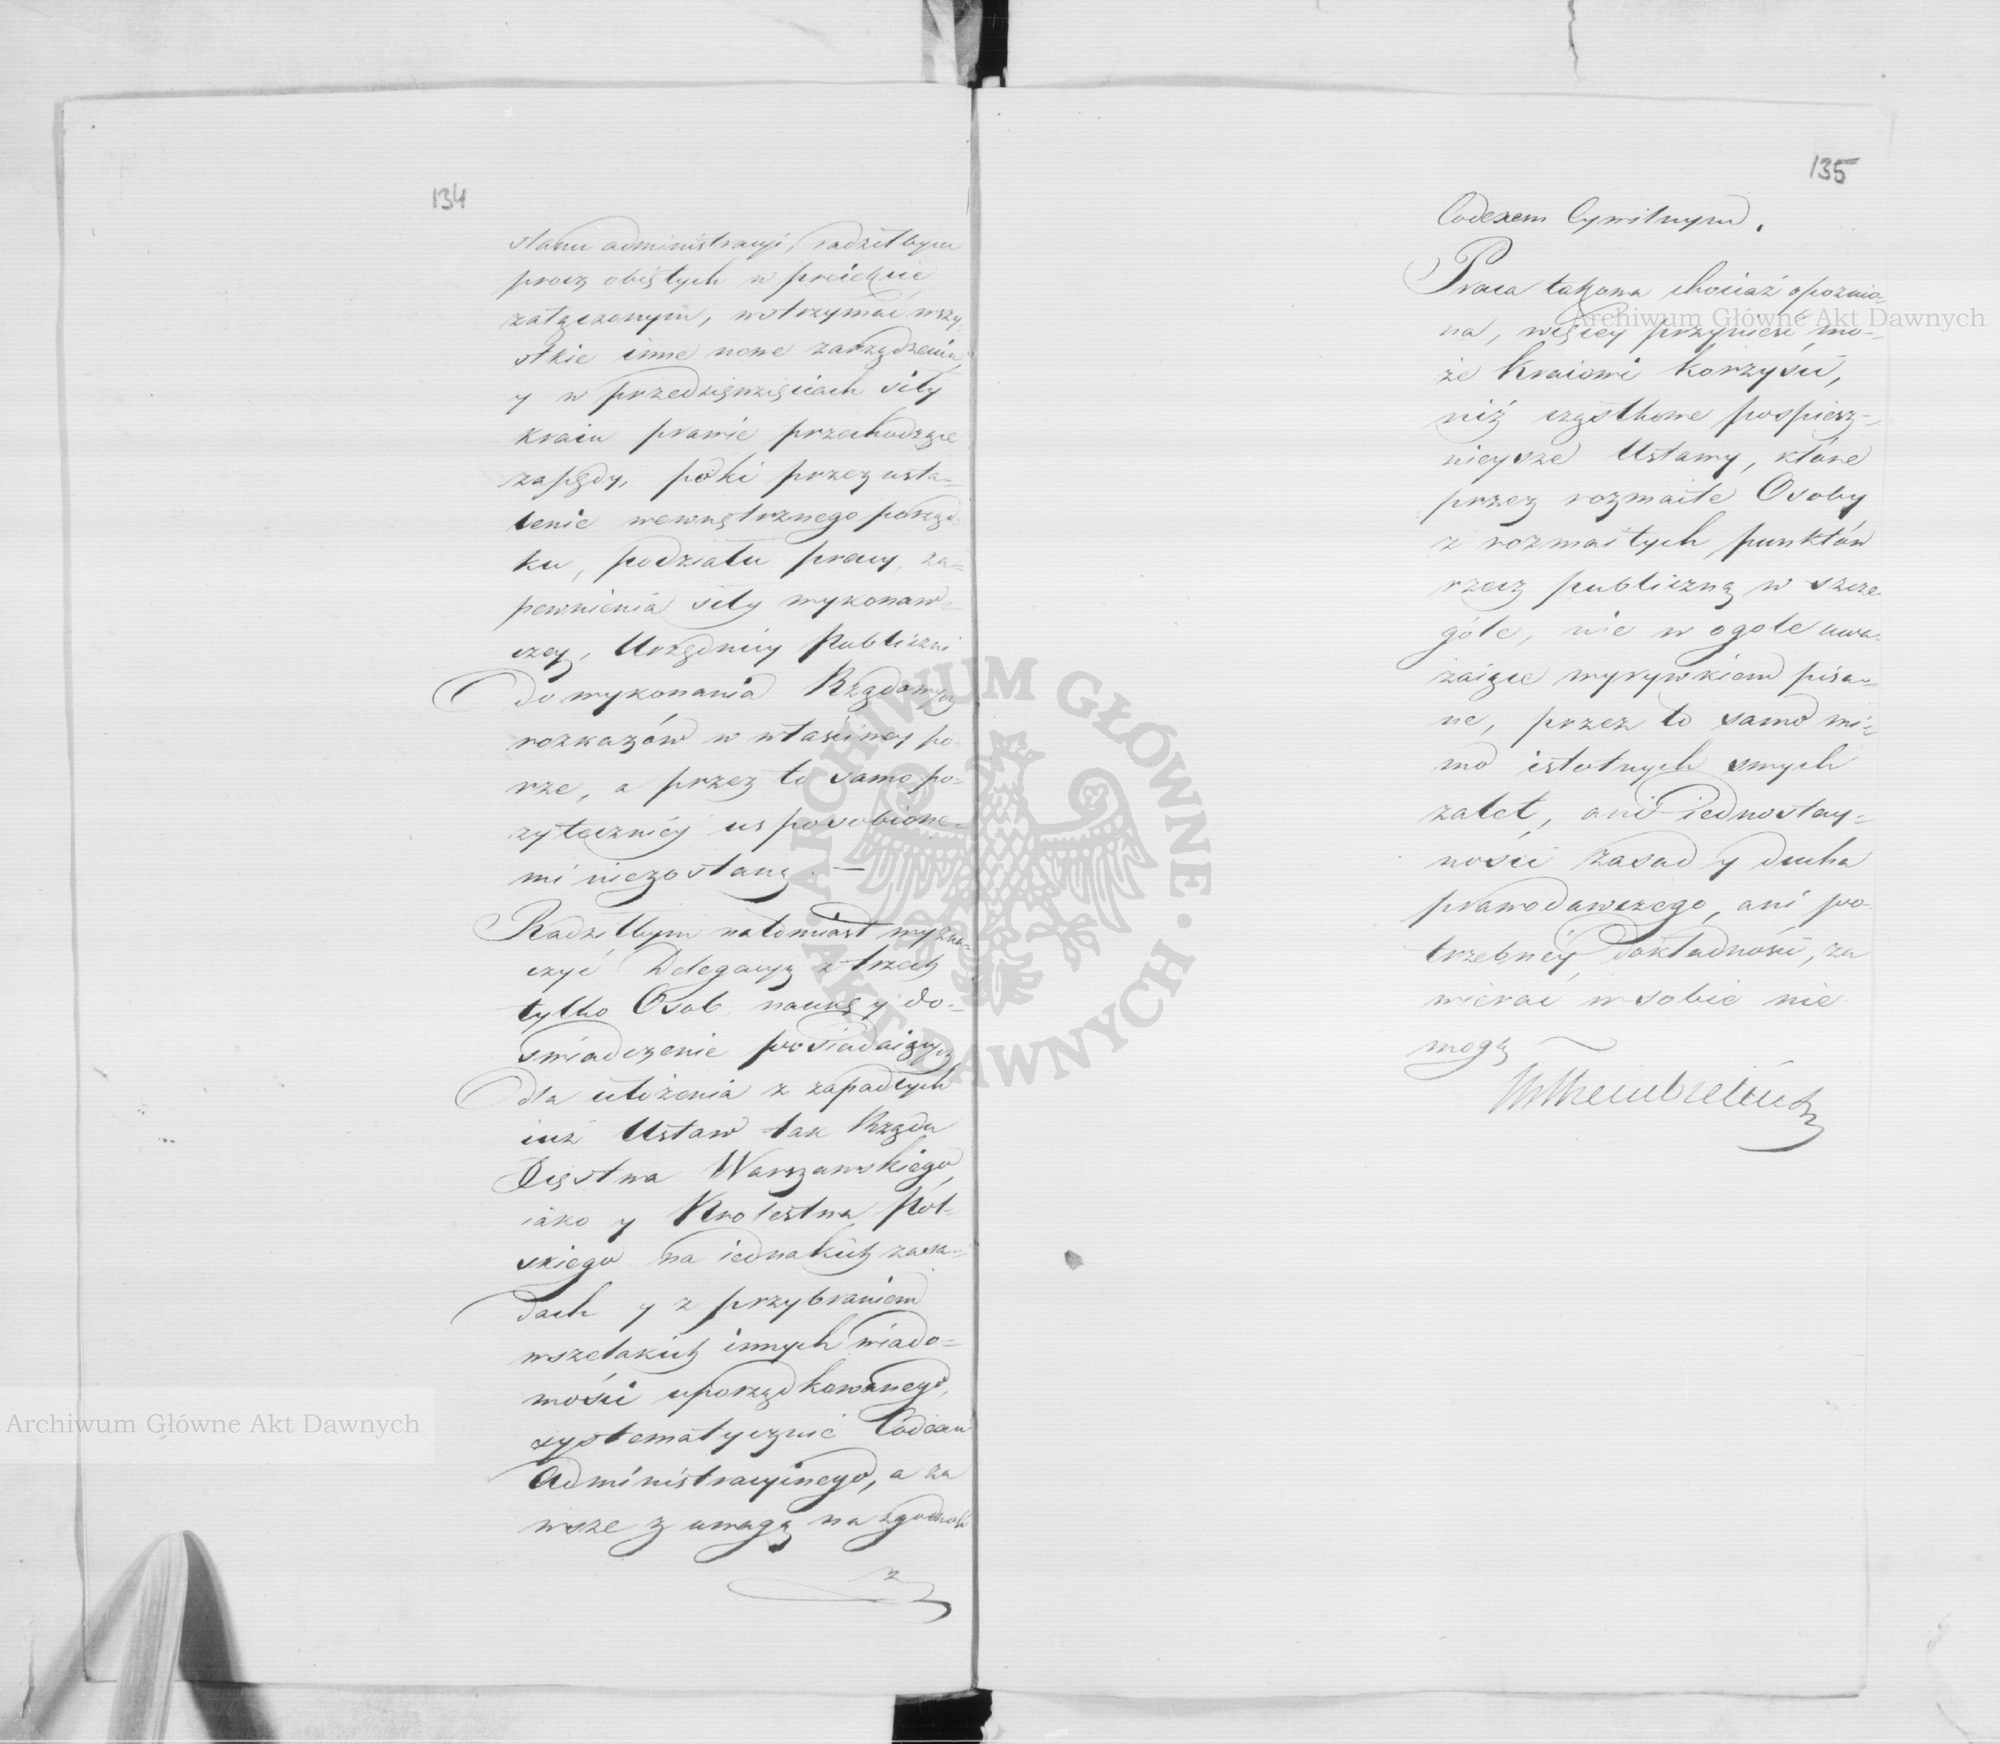 134
stanu administracyi, radziłbym
procz obiętych w proiekcie
załączonym, wstrzymać wszy-
stkie inne nowe zarządzenia
y w przedsięwzięciach siły
kraiu prawie przechodzące
zapędy, póki przez usta-
lenie wewnętrznego porząd-
ku, podziału pracy, za-
pewnienia siły wykonaw-
czey, Urzędnicy Publiczni
do wykonania Rządowych
rozkazów w właściwey po-
rze, a przez to samo po-
zyteczniéy usposobione-
mi niezostaną. —
Radziłbym natomiast wyzna-
czyć Delegacyą z trzech
tylko Osob naukę y do-
swiadczenie posiadaiących
dla ułożenia z zapadłych
iuż Ustaw tak Rządu
Xięstwa Warszawskiego,
iako y Krolestwa Pol-
skiego na iednakich zasa-
dach y z przybraniem
wszelakich innych wiado-
mości uporządkowanego,
systematycznie Codexu
Administracyinego, a za
wsze z uwagą na zgodność
z
135
Codexem Cywilnym.
Praca takowa chociaż opoznio-
na, więcey przynieść mo-
że kraiowi korzyści,
niż cząstkowe pospiesz-
nieysze Ustawy, które
przez rozmaite Osoby
z rozmaitych punktów
rzecz publiczną w szcze-
góle, nie w ogole uwa-
żaiące wyrywkiem pisa-
ne, przez to samo mi-
mo istotnych swych
zalet, ani iednostay-
ności zasad y ducha
prawodawczego, ani po-
trzebnéy dokładności, za
wierać w sobie nie
mogą
Archiwum Główne Akt Dawnych
Archiwum Główne Akt Dawnych
ARCHIWUM GŁÓWNE AKT DAWNYCH